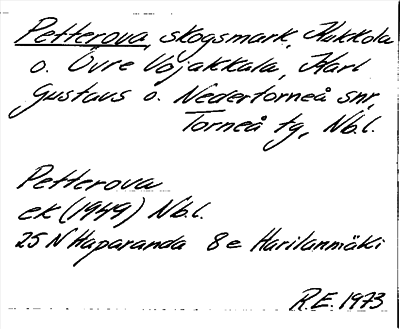 Petterova, skogsmark, Kukkola
o. Övre Vojakkala, Karl
Gustavs o. Nedertorneå snr,
Torneå tg, Nb.l.
Petterova
ek (1949) Nb.l.
25 N Haparanda 8 e Harilanmäki
R.E. 1973